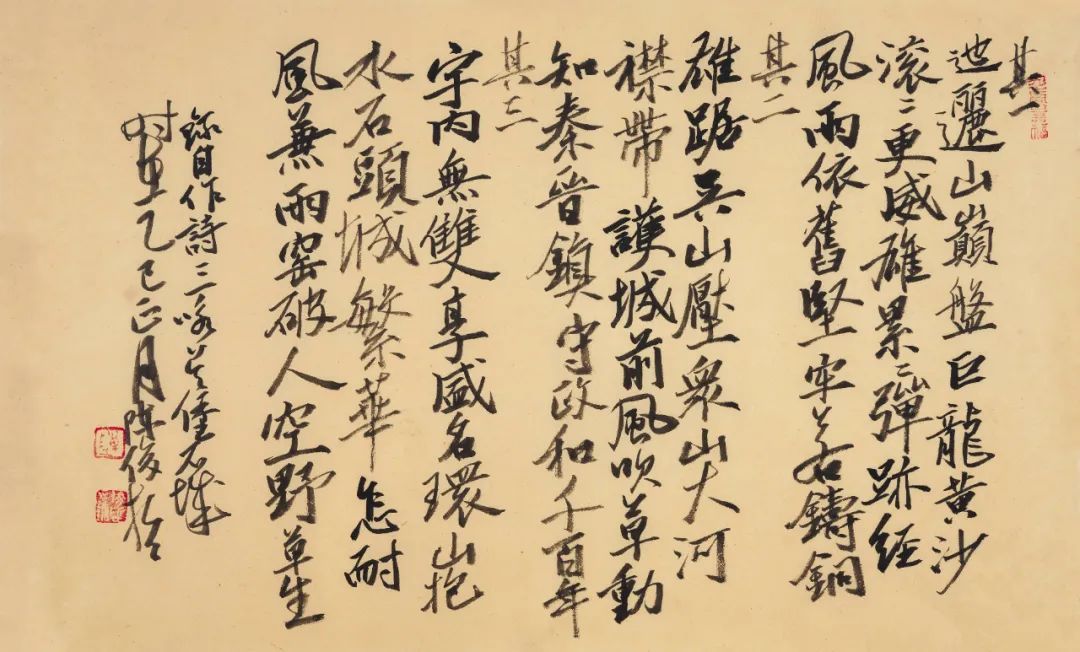 其一
迤邐山巔盤巨龍黃沙
滚〻更威雄累〻彈跡經
風雨依舊堅牢若鑄銅
其二
雄踞吴山壓衆山大河
襟帶護城前風吹草動
知秦晉鎮守政和千百年
其三
宇内無雙享盛名環山抱
水石頭城繁華怎耐
風兼雨窑破人空野草生
錄自作詩三咏吴堡石城
时在乙巳正月陳俊